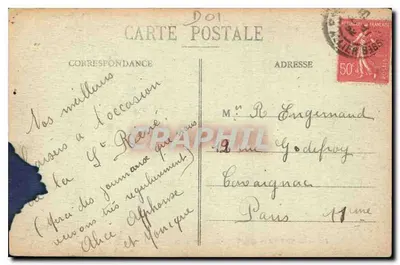 DOI
CARTE POSTALE
CORRESPONDANCE
ADRESSE
50c
Nos meilleurs
baisers à l'occasion
de la St René
(Merci des journaux que nous
recevons très régulièrement)
Alice Alphonse
et Monique
Mr R Engernand
2 rue Godefroy
Cavaignac
Paris 11eme
CPARAMA